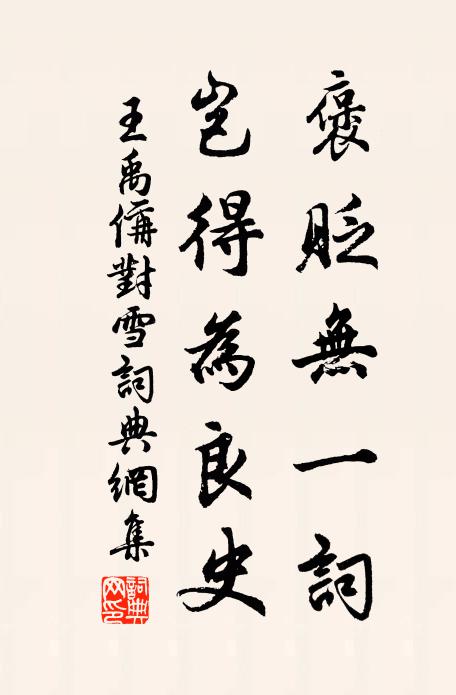 褒貶無一詞
豈得為良史
王禹偁對雪詞典網集
詞典網印